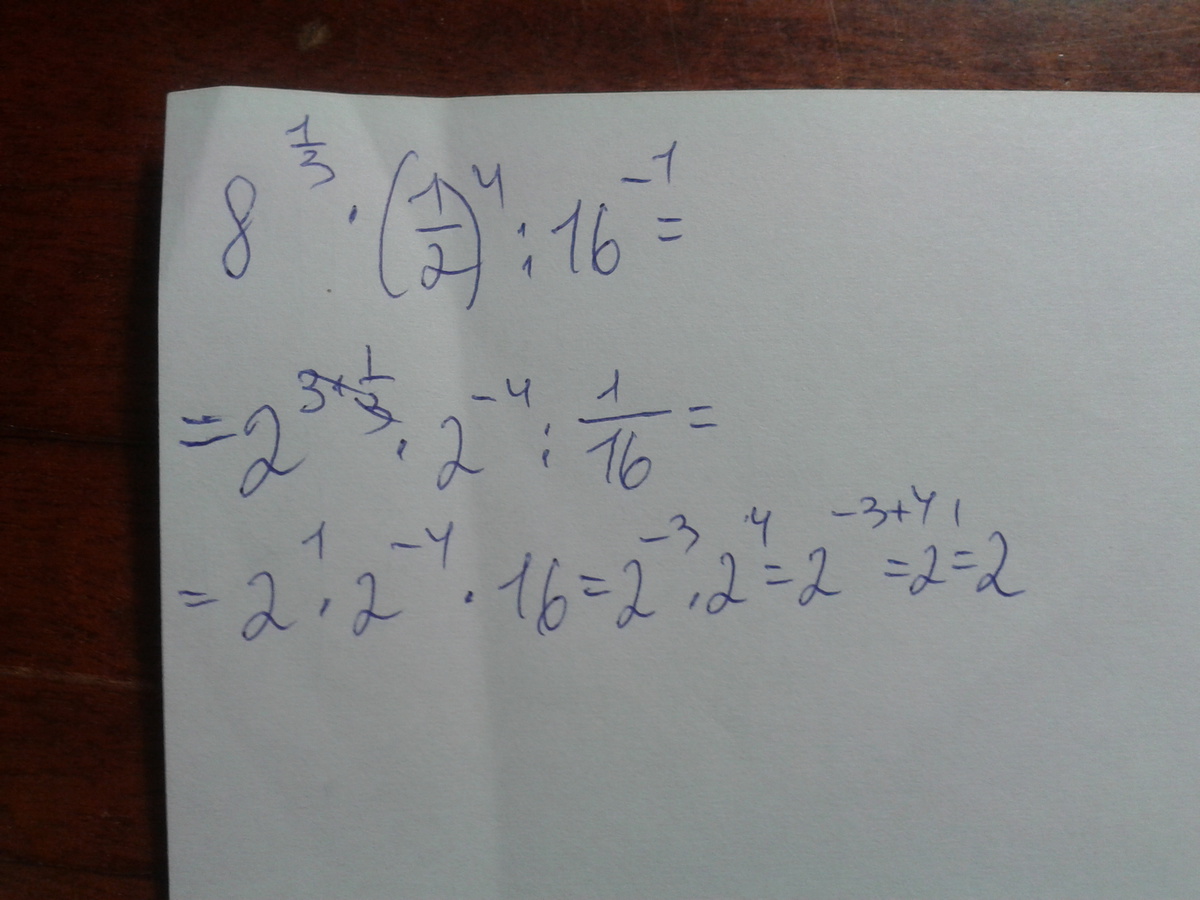 8^{\frac{1}{3}} · (\frac{1}{2})^4 : 16^{-1} =
= 2^{3+\frac{1}{3}} · 2^{-4} : \frac{1}{16} =
= 2^1 · 2^{-4} · 16 = 2^{-3} · 2^4 = 2^{-3+4} = 2^1 = 2